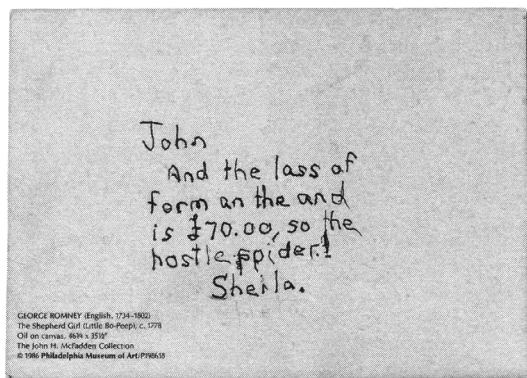 John
And the lass of
form an the and
is £70.00, so the
hostle spider!
Sheila.
GEORGE ROMNEY (English, 1734–1802)
The Shepherd Girl (Little Bo-Peep), c. 1778
Oil on canvas, 46¼ x 35½"
The John H. McFadden Collection
© 1986 Philadelphia Museum of Art/P198618